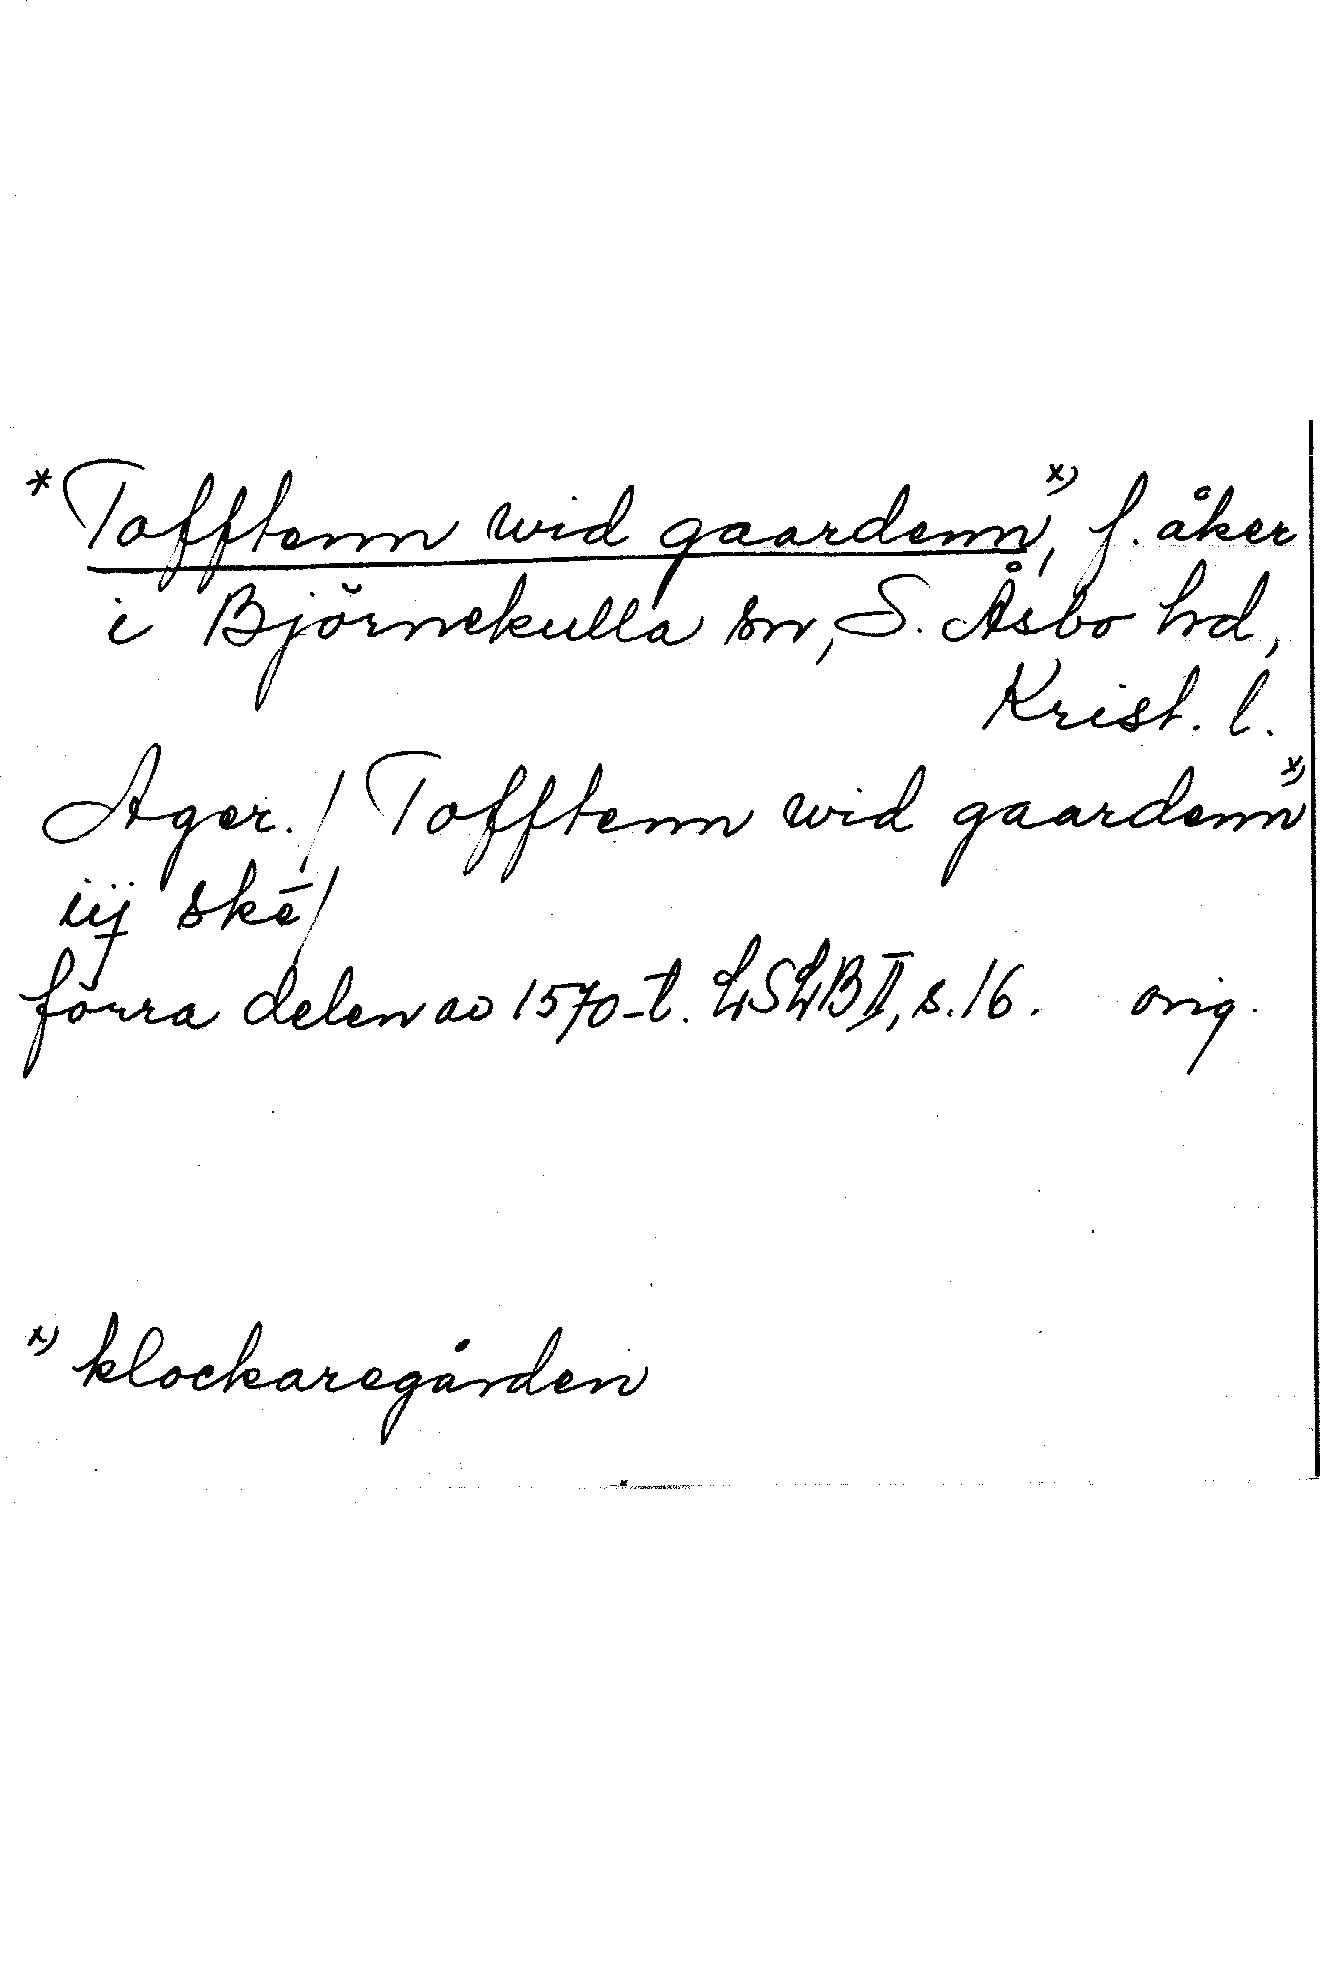 *Tofftenn wid gaardenn x), f. åker
i Björnekulla sn, S. Åsbo hd,
Krist. l.
Ager. / Tofftenn wid gaardenn x)
iij skē /
förra delen av 1570-t. LSLB II, s. 16. orig.
x) klockaregården